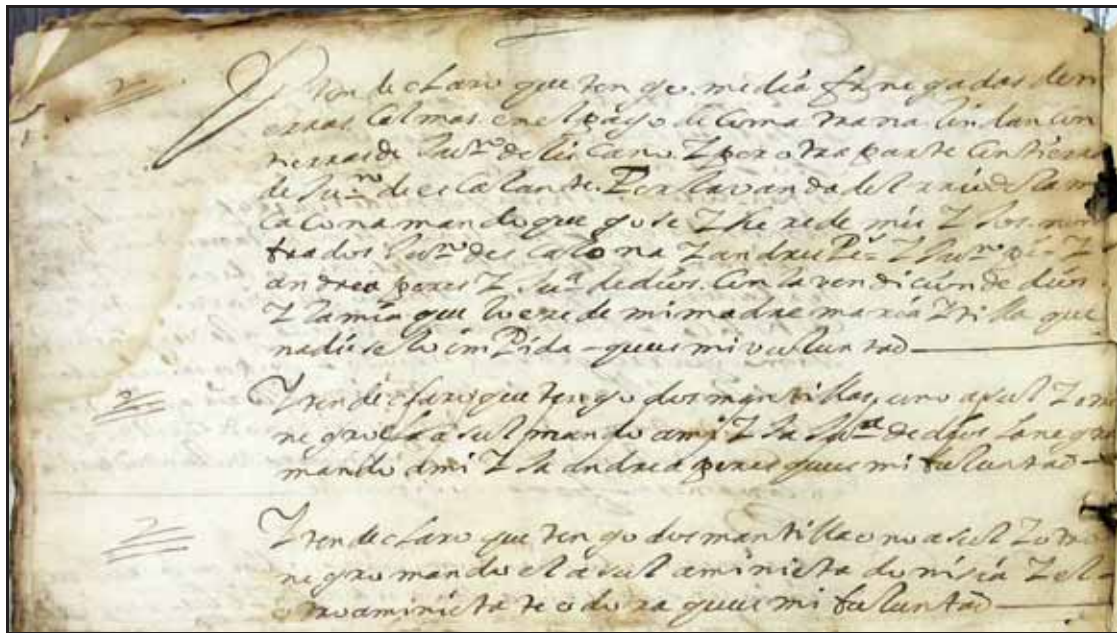 Yten declaro que tengo media fanegadas de ti
erras Calmas en el pago de Coma trana lindan Con
tierras de Juº de lis Cano Y por otra parte Con tierras
de Juº de escalante. Por la vanda del rrio de la
mando que gose Y herede mis Yjos
Juº descalona Y andres Pe Y Juº pe Y
andrea peres Y Juª de dios. Con la vendicion de dios
Y la mia que lo erede mi madre maria Y que
nadie se lo inPida – ques mi voluntad
Yten declaro que tengo dos mantillas uno asul Y otro
negro la asul mando a mi Yja Juª de dios la negra
mando a mi Yja andrea peres ques mi boluntad
Yten declaro que tengo dos mantilla uno asul Y otro
negro mando el asul a mi nieta donisia Y el
otro a mi nieta teodora ques mi boluntad